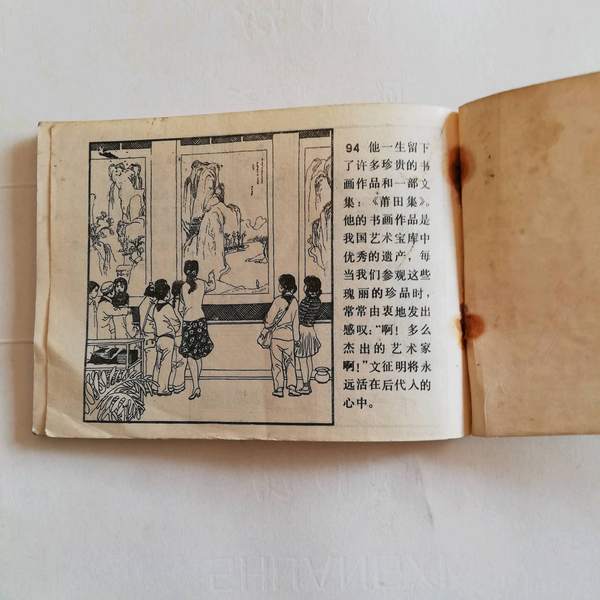 94 他一生留下
了许多珍贵的书
画作品和一部文
集：《莆田集》。
他的书画作品是
我国艺术宝库中
优秀的遗产，每
当我们参观这些
瑰丽的珍品时，
常常由衷地发出
感叹：“啊！多么
杰出的艺术家
啊！”文征明将永
远活在后代人的
心中。